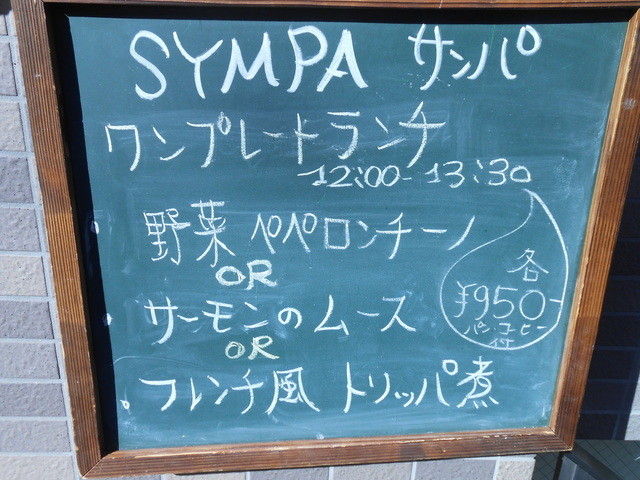 SYMPA サンパ
ワンプレートランチ
12:00-13:30
野菜 ペペロンチーノ
OR
サーモンのムース
OR
フレンチ風 トリッパ煮
各
¥950-
パン・コーヒー
付